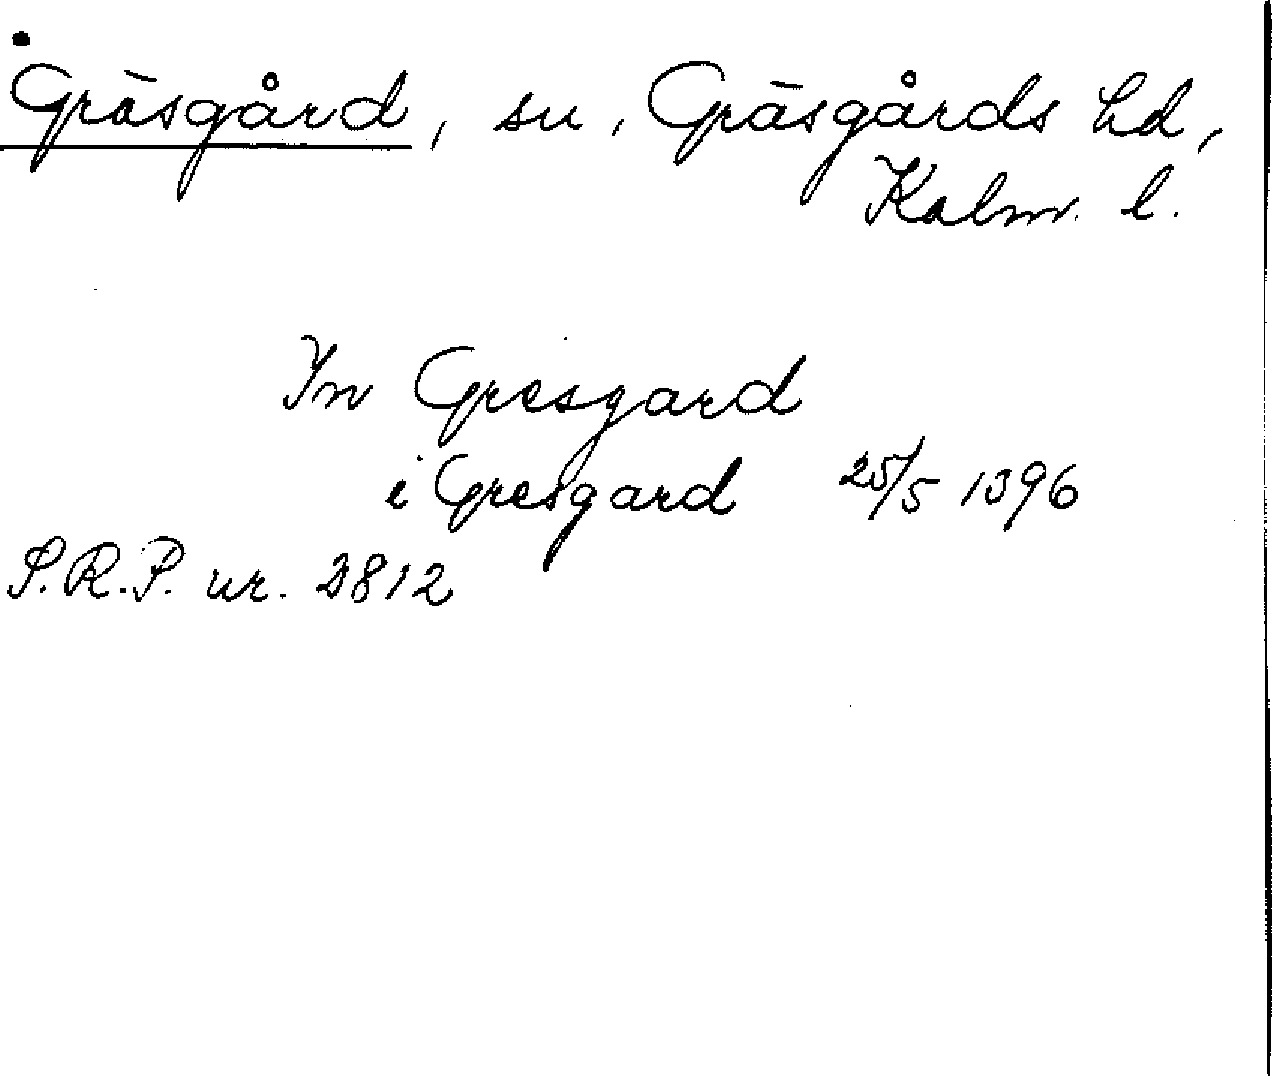 Gräsgård, sn, Gräsgårds hd,
Kalm. l.
In Gresgard
i Gresgard 25/5 1396
S.R.P. nr. 2812